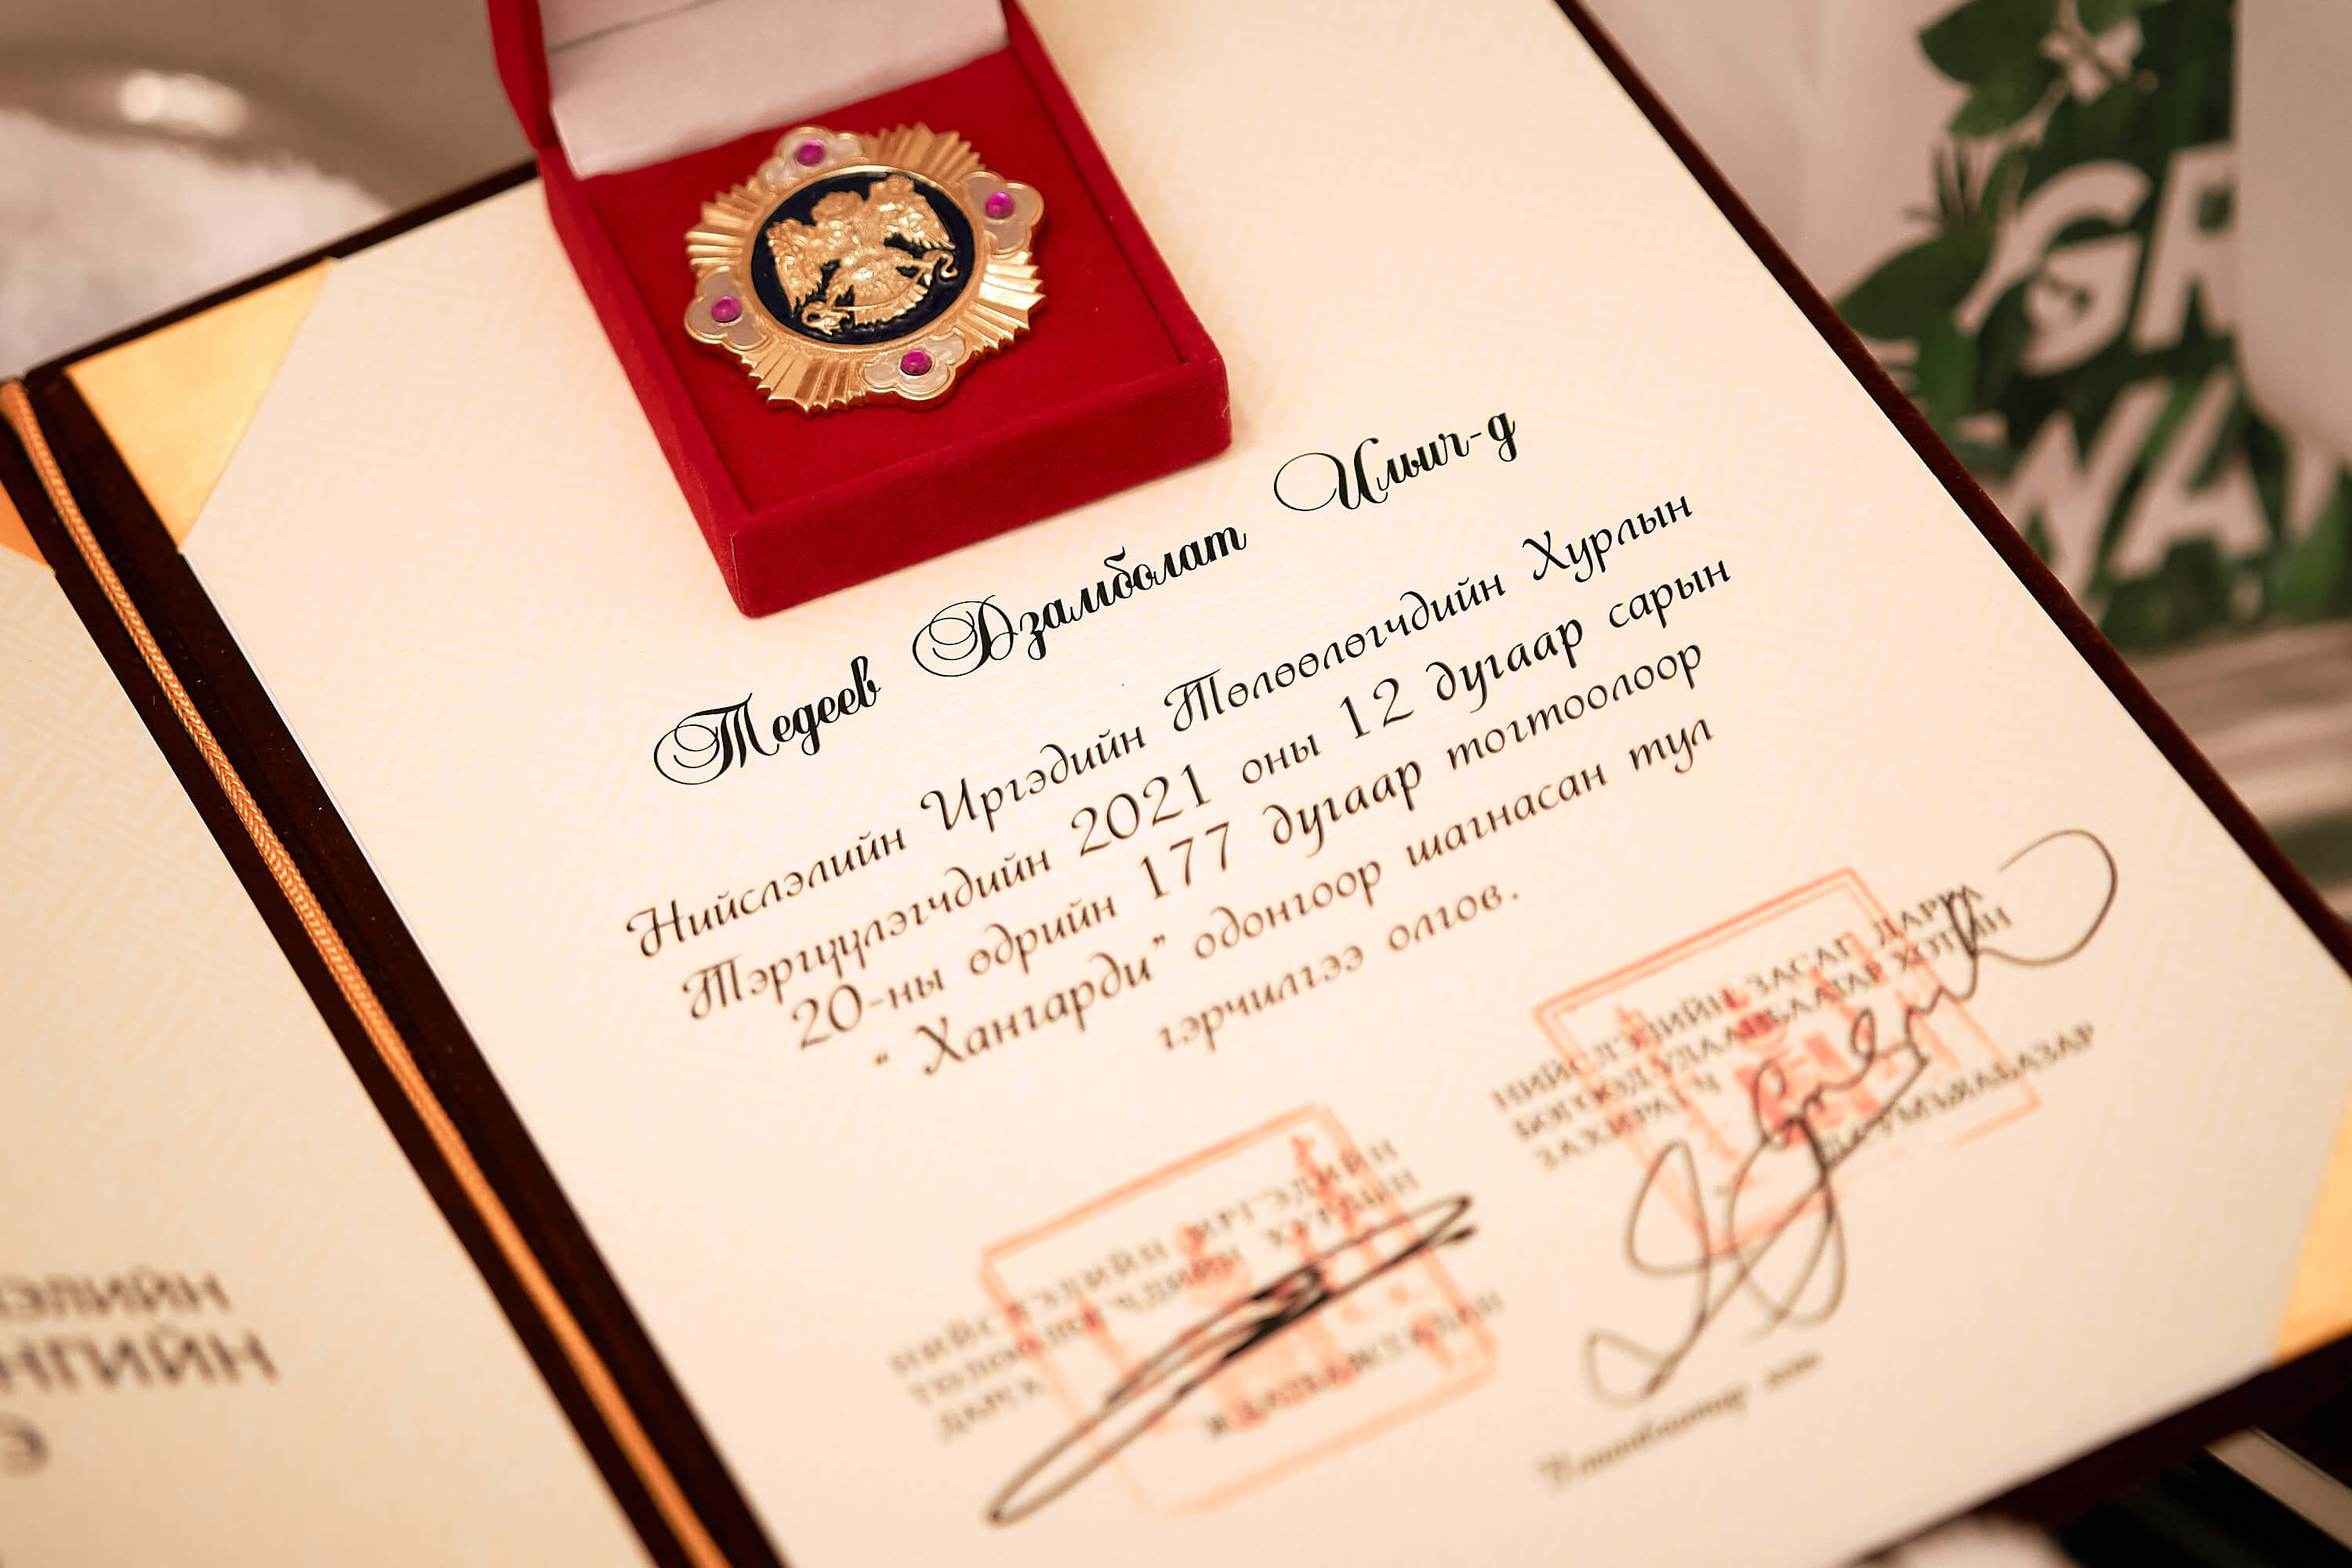 Тедеев Дзамболат Ильич-д
Нийслэлийн Иргэдийн Төлөөлөгчдийн Хурлын
Тэргүүлэгчдийн 2021 оны 12 дугаар сарын
20-ны өдрийн 177 дугаар тогтоолоор
"Хангарди" одонгоор шагнасан тул
гэрчилгээ олгов.
НИЙСЛЭЛИЙН ЗАСАГ ДАРГА
БӨГӨӨД УЛААНБААТАР ХОТЫН
ЗАХИРАГЧ
НИЙСЛЭЛИЙН ИРГЭДИЙН
ТӨЛӨӨЛӨГЧДИЙН ХУРЛЫН
ДАРГА
Улаанбаатар хот